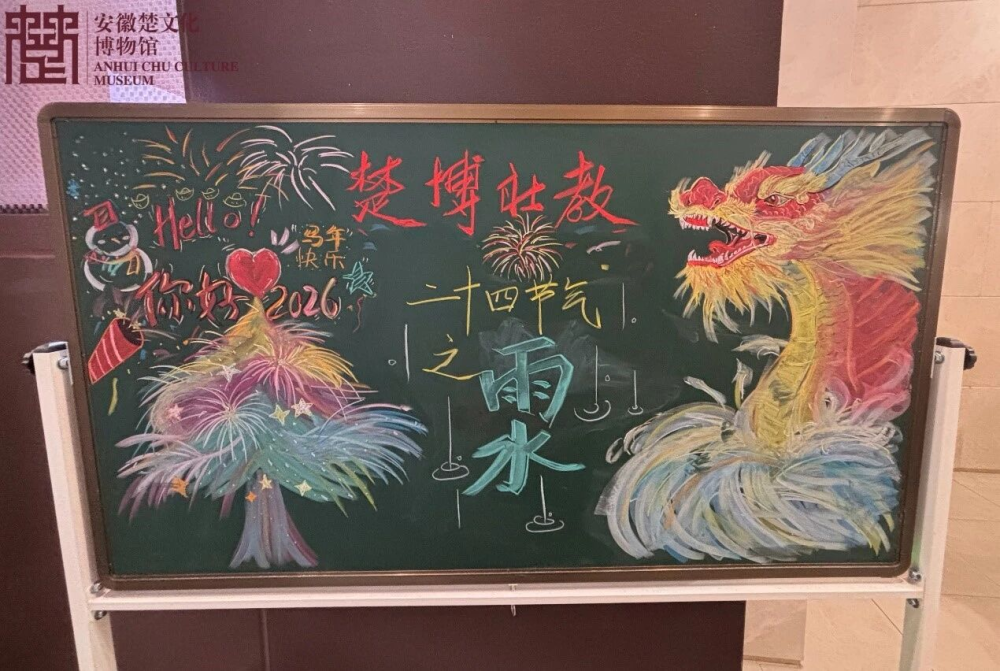 安徽楚文化
博物馆
ANHUI CHU CULTURE
MUSEUM
楚博社教
Hello!
马年
快乐
你好 2026
二十四节气
之
雨水